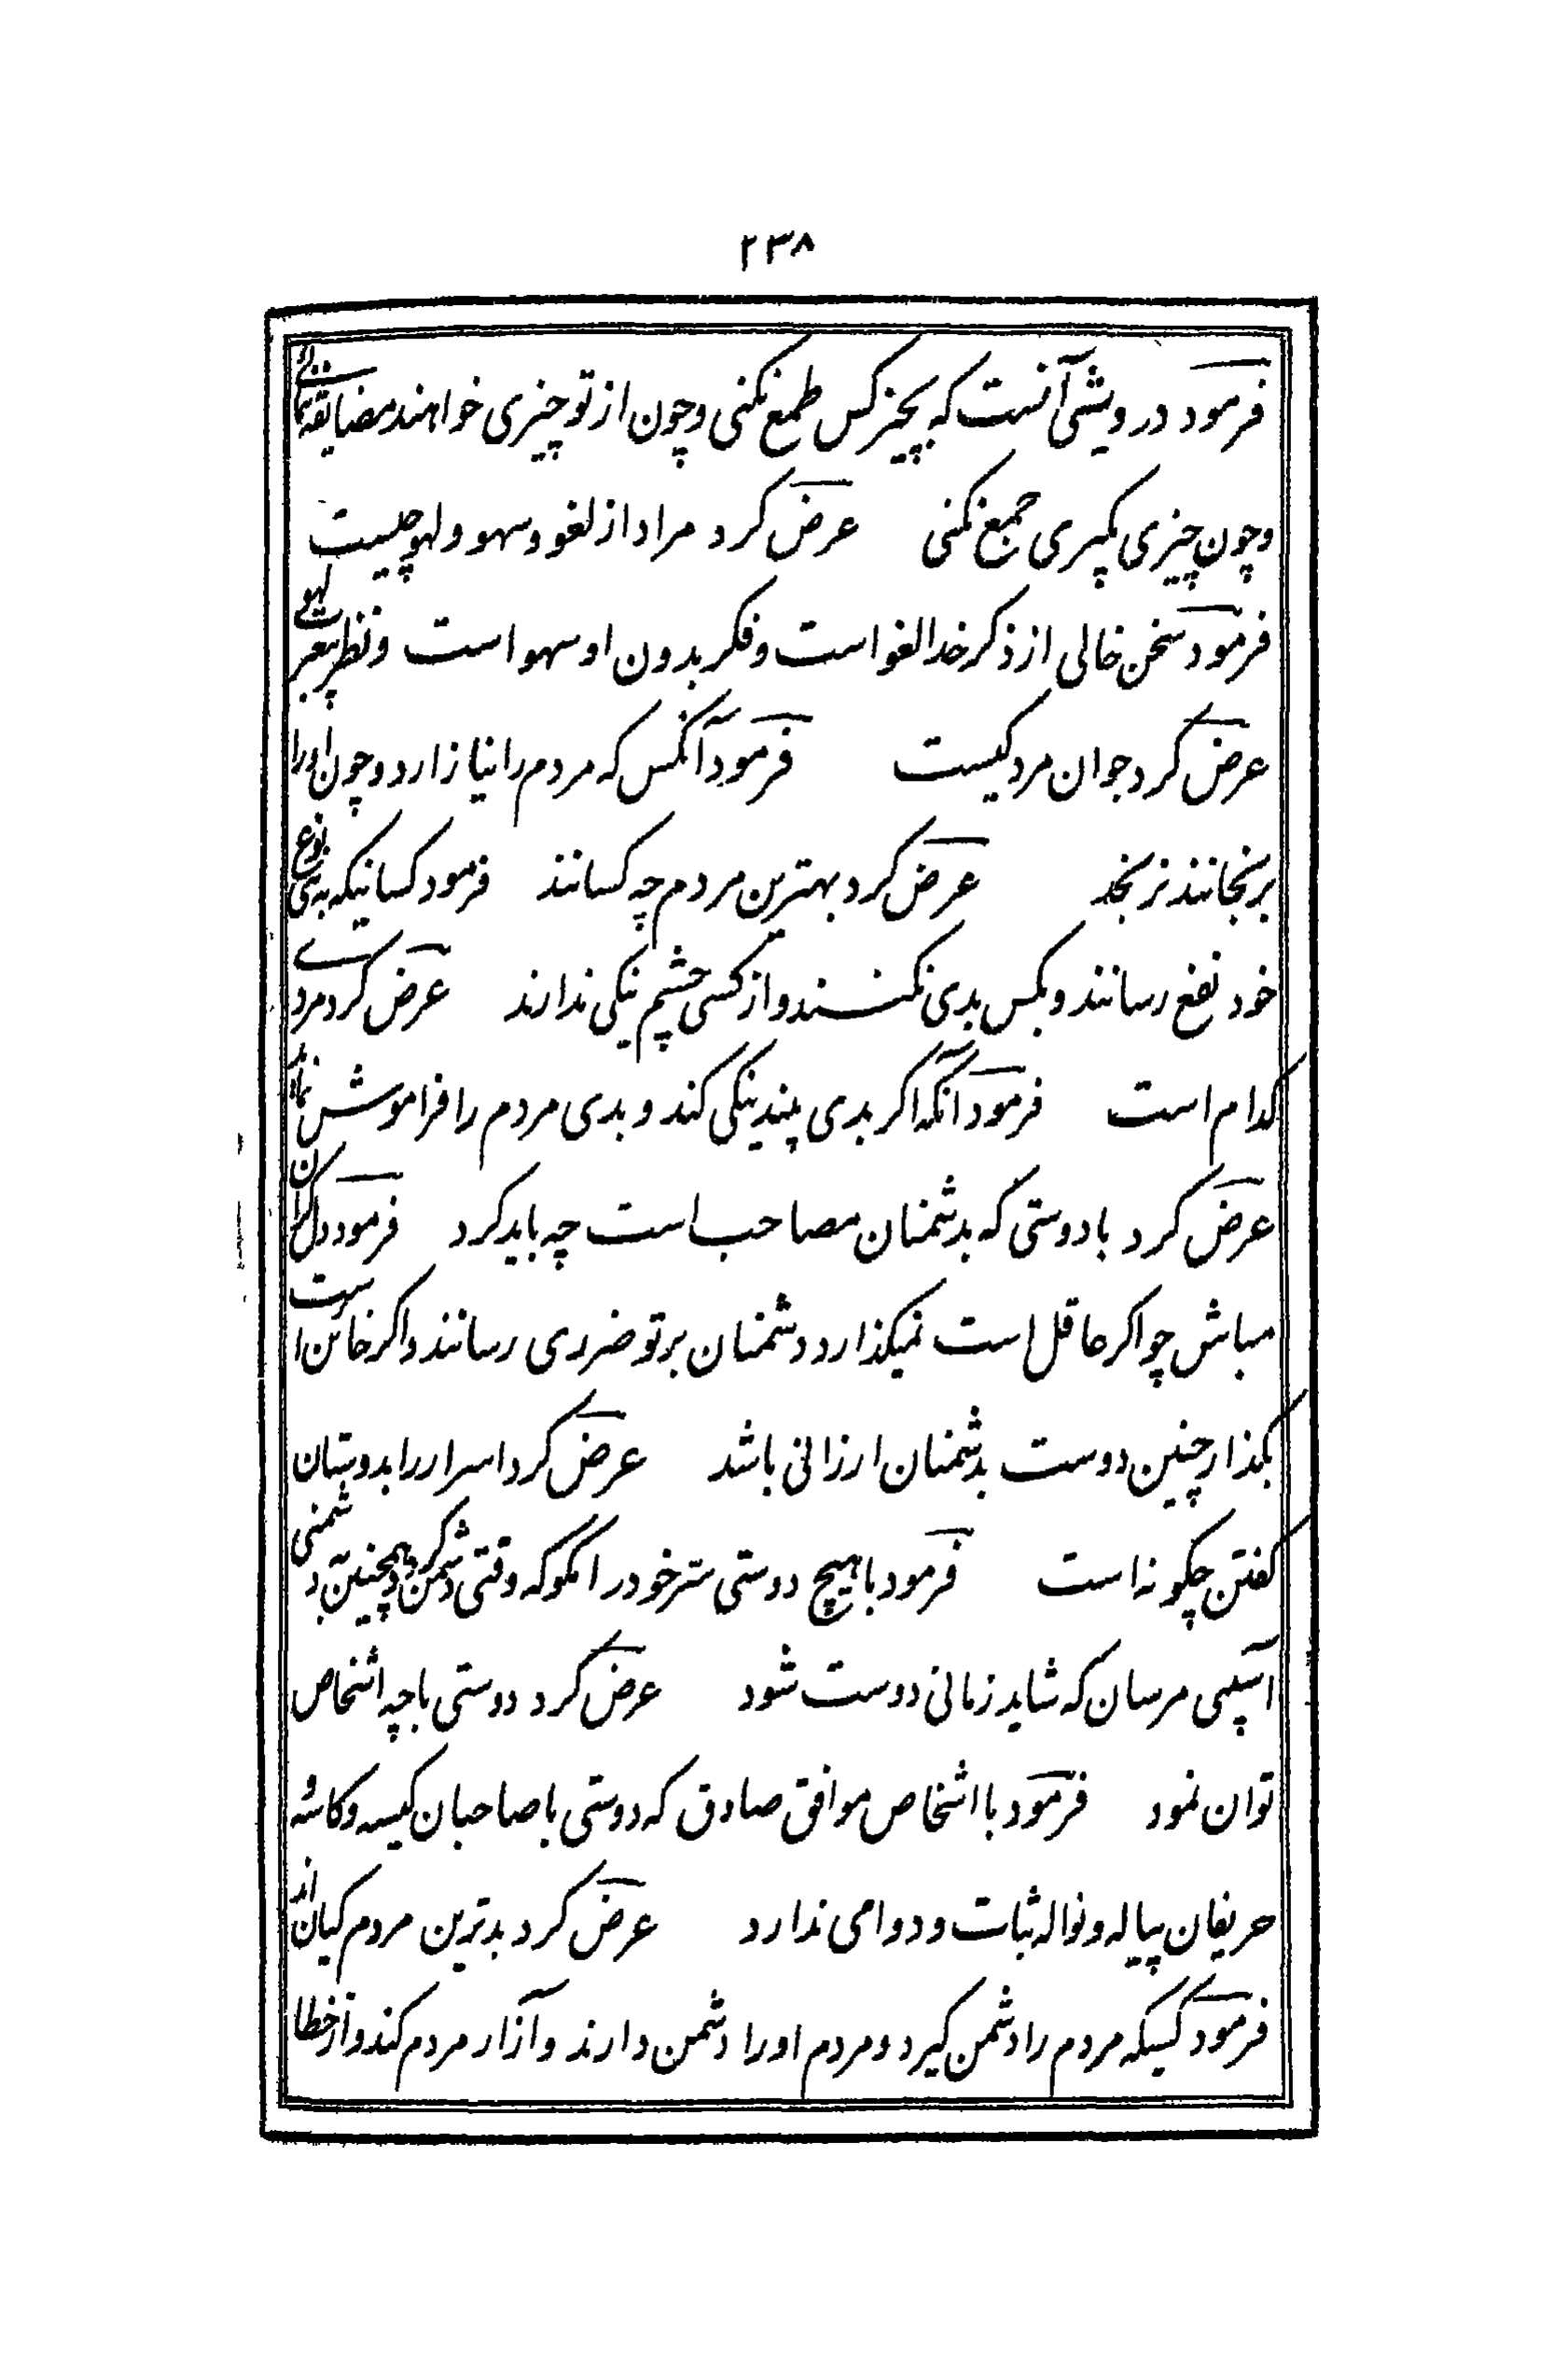 ۲۳۸
فرمود درویشی آنست که بچیز کس طمع نکنی و چون از تو چیزی خواهند مضایقه ننمائی
و چون چیزی بگیری جمع نکنی عرض کرد مراد از لغو و سهو و لهو چیست
فرمود سخن خالی از ذکر خدا لغو است و فکر بدون او سهو است و نظر بی‌عبرت لهو
عرض کرد جوان مرد کیست فرمود آنکس که مردم را نیازارد و چون او را
برنجانند نرنجد عرض کرد بهترین مردم چه کسانند فرمود کسانیکه به بنی نوع
خود نفع رسانند و بکس بدی نکنند و از کسی چشم نیکی ندارند عرض کرد مردی
کدام است فرمود آنکه اگر بدی بیند نیکی کند و بدی مردم را فراموش نماید
عرض کرد با دوستی که بدشمنان مصاحب است چه باید کرد فرمود دل گران
مباش چو اگر عاقل است نمیگذارد دشمنان بر تو ضرری رسانند و اگر خائن است
بگذار چنین دوست بدشمنان ارزانی باشد عرض کرد اسرار را بدوستان
گفتن چگونه است فرمود با هیچ دوستی ستر خود را مگو که وقتی دشمن گردد و همچنین به دشمنی
آسیبی مرسان که شاید زمانی دوست شود عرض کرد دوستی با چه اشخاص
توان نمود فرمود با اشخاص موافق صادق که دوستی با صاحبان کیسه و کاسه
حریفان پیاله و نواله ثبات و دوامی ندارد عرض کرد بدترین مردم کیان‌اند
فرمود کسیکه مردم را دشمن گیرد و مردم او را دشمن دارند و آزار مردم کند و از خطا